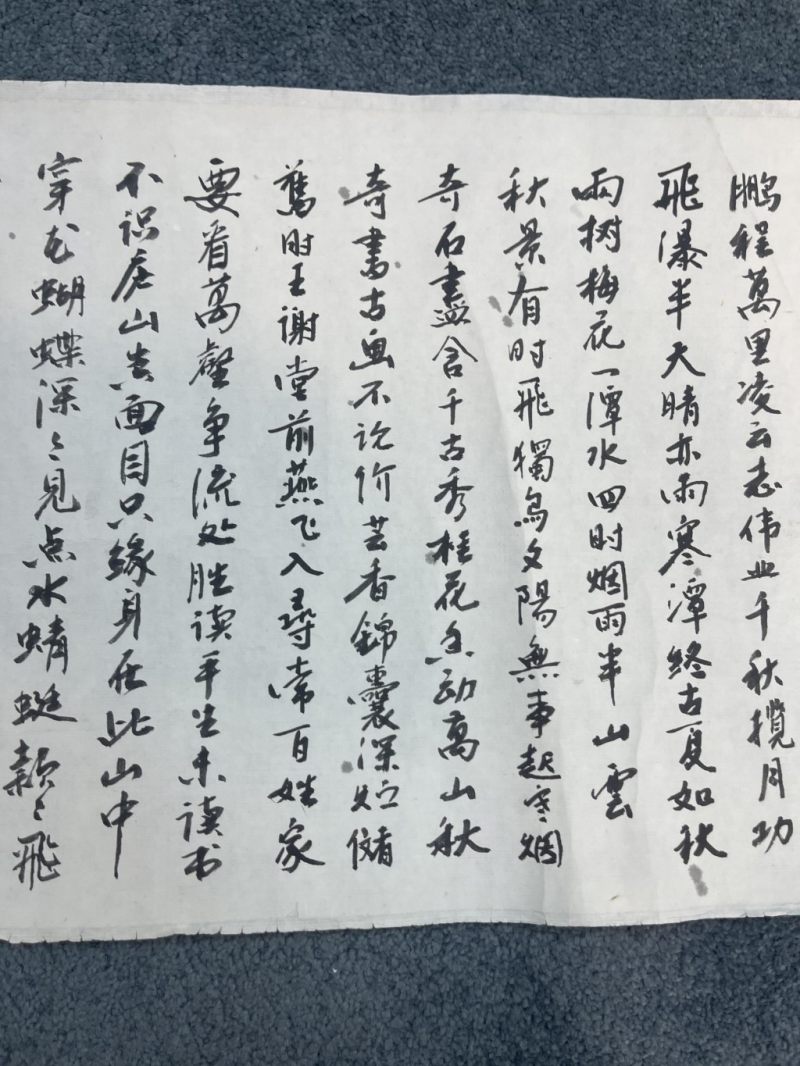 鹏程萬里凌云志伟业千秋揽月功
飛瀑半天晴亦雨寒潭終古夏如秋
兩树梅花一潭水四时烟雨半山雲
秋景有时飛獨鸟夕陽無事起寒烟
奇石盡含千古秀桂花香动萬山秋
奇書古画不论价芸香錦囊深
舊时王謝堂前燕飞入尋常百姓家
要看萬壑争流处胜读平生未读书
不识庐山真面目只缘身在此山中
穿花蝴蝶深〻見点水蜻蜓款〻飛